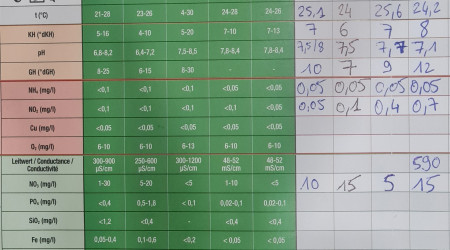 t (°C) 21-28 23-26 4-30 24-28 24-26 25,1 24 25,6 24,2
KH (°dKH) 5-16 4-10 5-20 7-10 7-13 7 6 7 8
pH 6,8-8,2 6,4-7,2 7,5-8,5 7,8-8,4 7,8-8,4 7,5/8 7,5 7,7 7,1
GH (°dGH) 8-25 6-15 8-30 - - 10 7 9 12
NH₄ (mg/l) <0,1 <0,1 <0,1 <0,05 <0,05 0,05 0,05 0,05 0,05
NO₂ (mg/l) <0,1 <0,1 <0,1 <0,05 <0,05 0,05 0,1 0,4 0,7
Cu (mg/l) <0,05 <0,05 <0,05 <0,05 <0,05
O₂ (mg/l) 6-10 6-10 6-13 6-10 6-10
Leitwert / Conductance / Conductivité 300-900 µS/cm 250-600 µS/cm 300-1200 µS/cm 48-52 mS/cm 48-52 mS/cm 590
NO₃ (mg/l) 1-30 5-20 <5 1-10 <5 10 15 5 15
PO₄ (mg/l) <0,4 0,5-1,8 <0,1 0,02-0,1 0,02-0,1
SiO₂ (mg/l) <1,2 <0,4 - <0,4 <0,4
Fe (mg/l) 0,05-0,4 0,1-0,6 <0,2 <0,05 <0,05